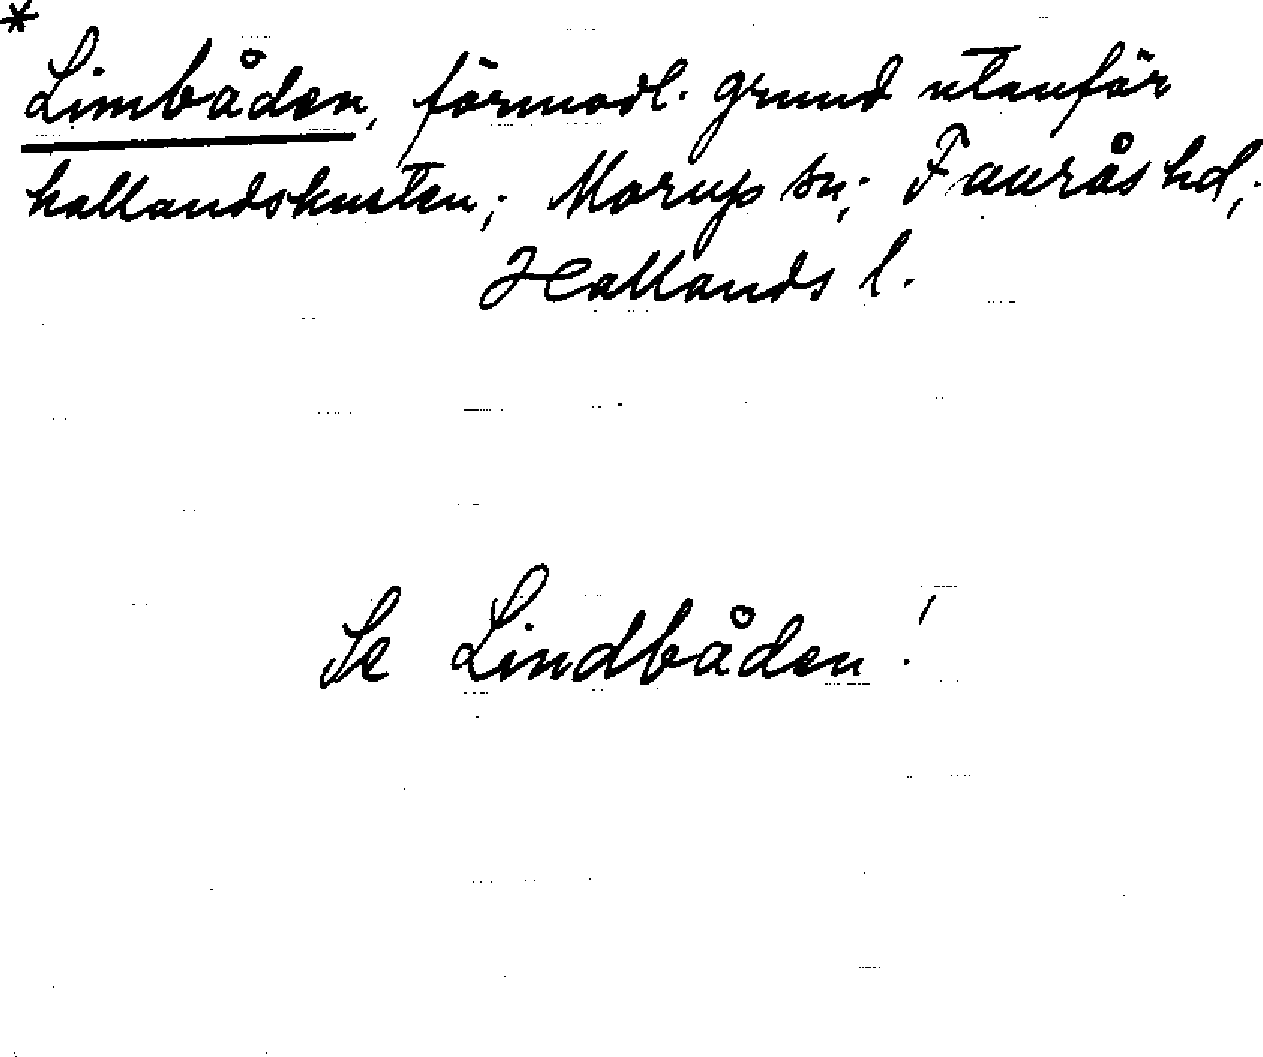 *
Limbåden, förmodl. grund utanför
hallandskusten; Morup sn; Faurås hd;
Hallands l.
Se Lindbåden!